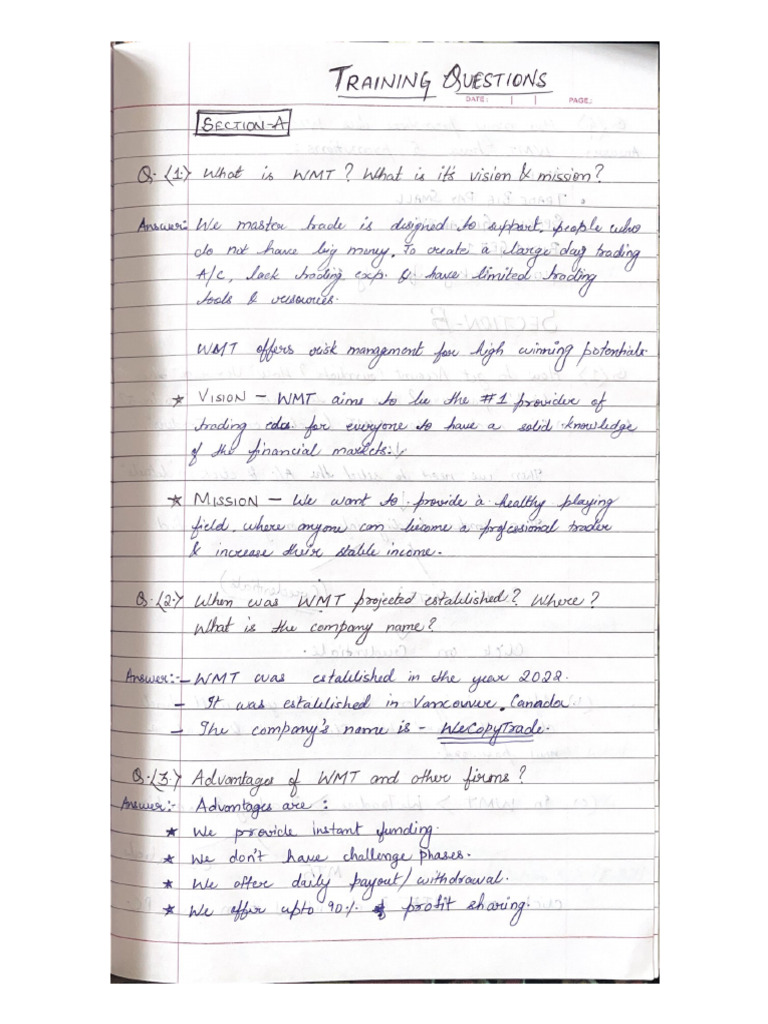 TRAINING QUESTIONS
DATE: PAGE:
SECTION-A
Q.(1.) What is WMT? What is it's vision & mission?
Answer: We master trade is designed to support, people who
do not have big money, To create a large day trading
A/C, lack trading exp. & have limited trading
tools & resources.
WMT offers risk management for high winning potentials.
★ VISION – WMT aims to be the #1 provider of
trading edu. for everyone to have a solid knowledge
of the financial markets.
★ MISSION – We want to provide a healthy playing
field, where anyone can become a professional trader
& increase their stable income.
Q.(2.) When was WMT projected established? Where?
What is the company name?
Answer:- – WMT was established in the year 2022.
– It was established in Vancouver, Canada.
– The company's name is – WeCopyTrade.
Q.(3.) Advantages of WMT and other firms?
Answer:- Advantages are :
★ We provide instant funding.
★ We don't have challenge phases.
★ We offer daily payout/withdrawal.
★ We offer upto 90% profit sharing.